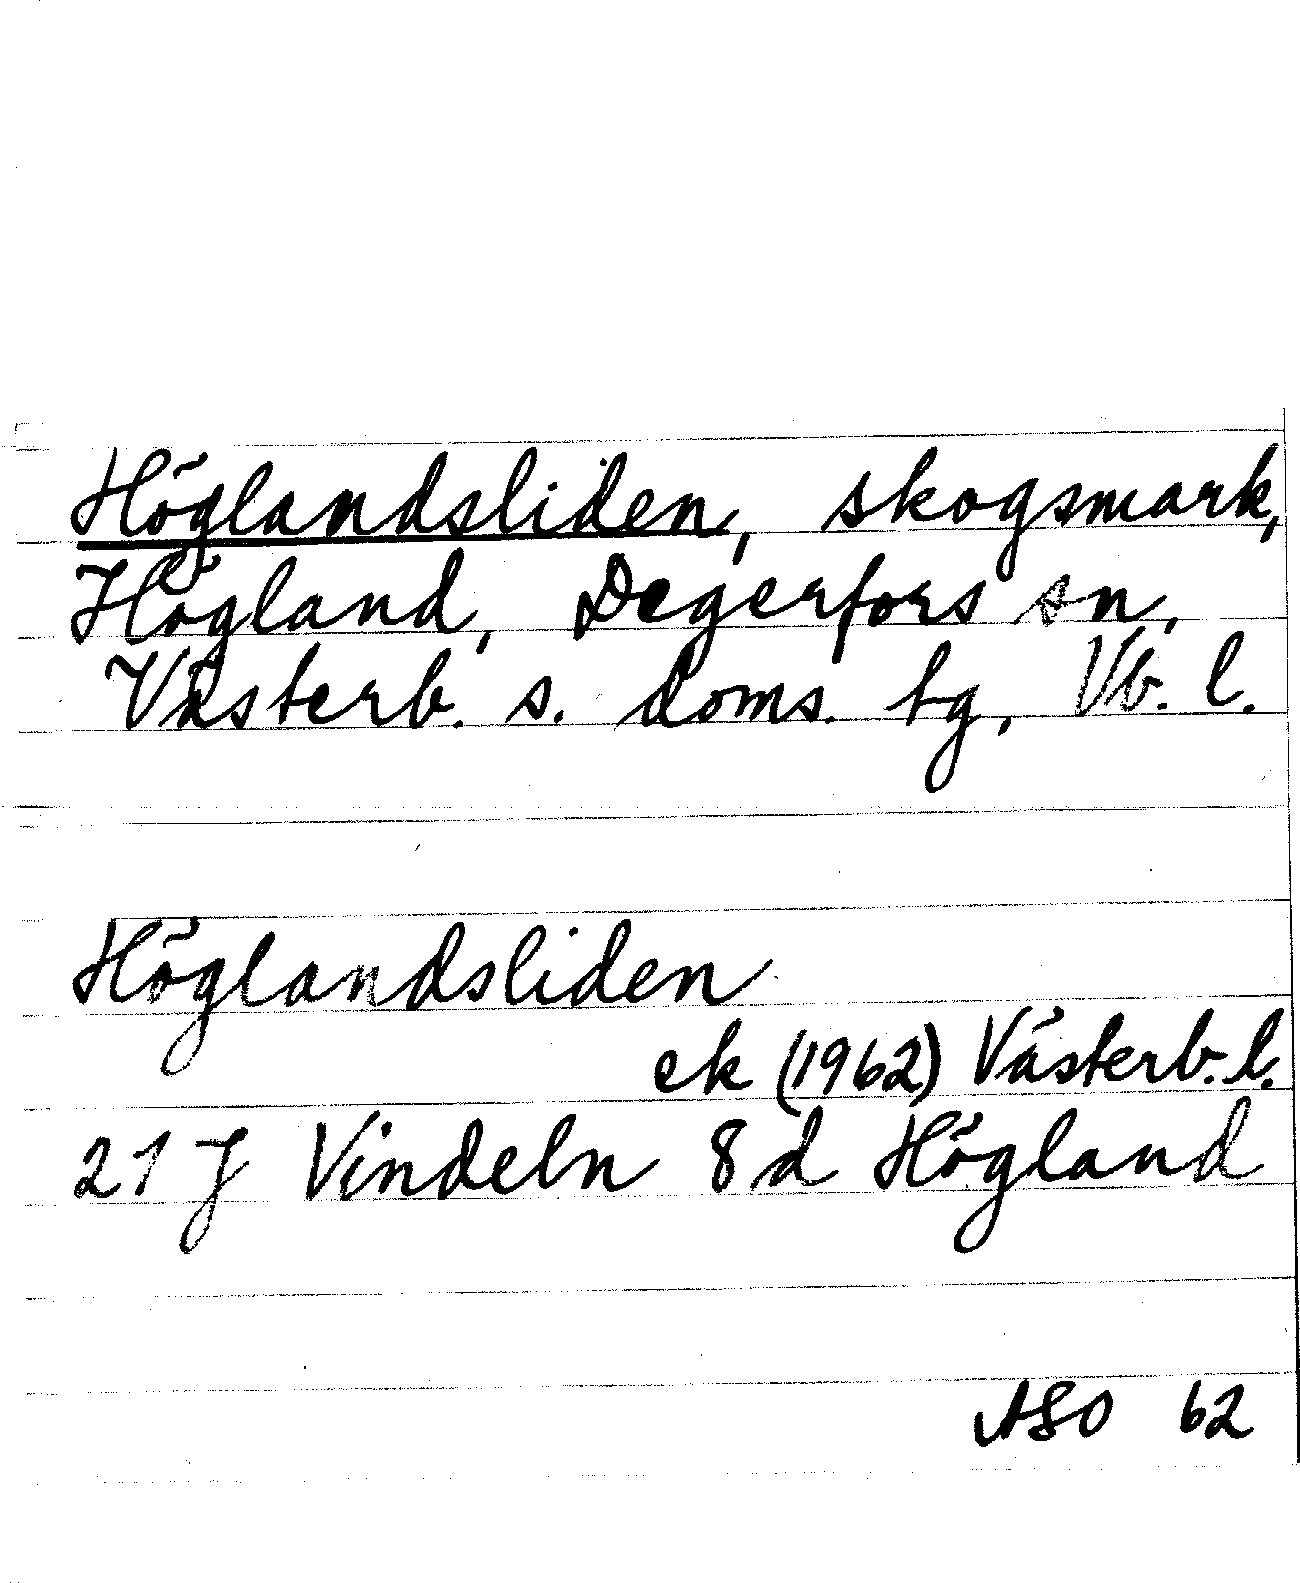 Höglandsliden, skogsmark,
Högland, Degerfors sn,
Västerb. s. doms. tg, Vb. l.
Höglandsliden
ek (1962) Västerb. l.
21 J Vindeln 8 d Högland
ASO 62